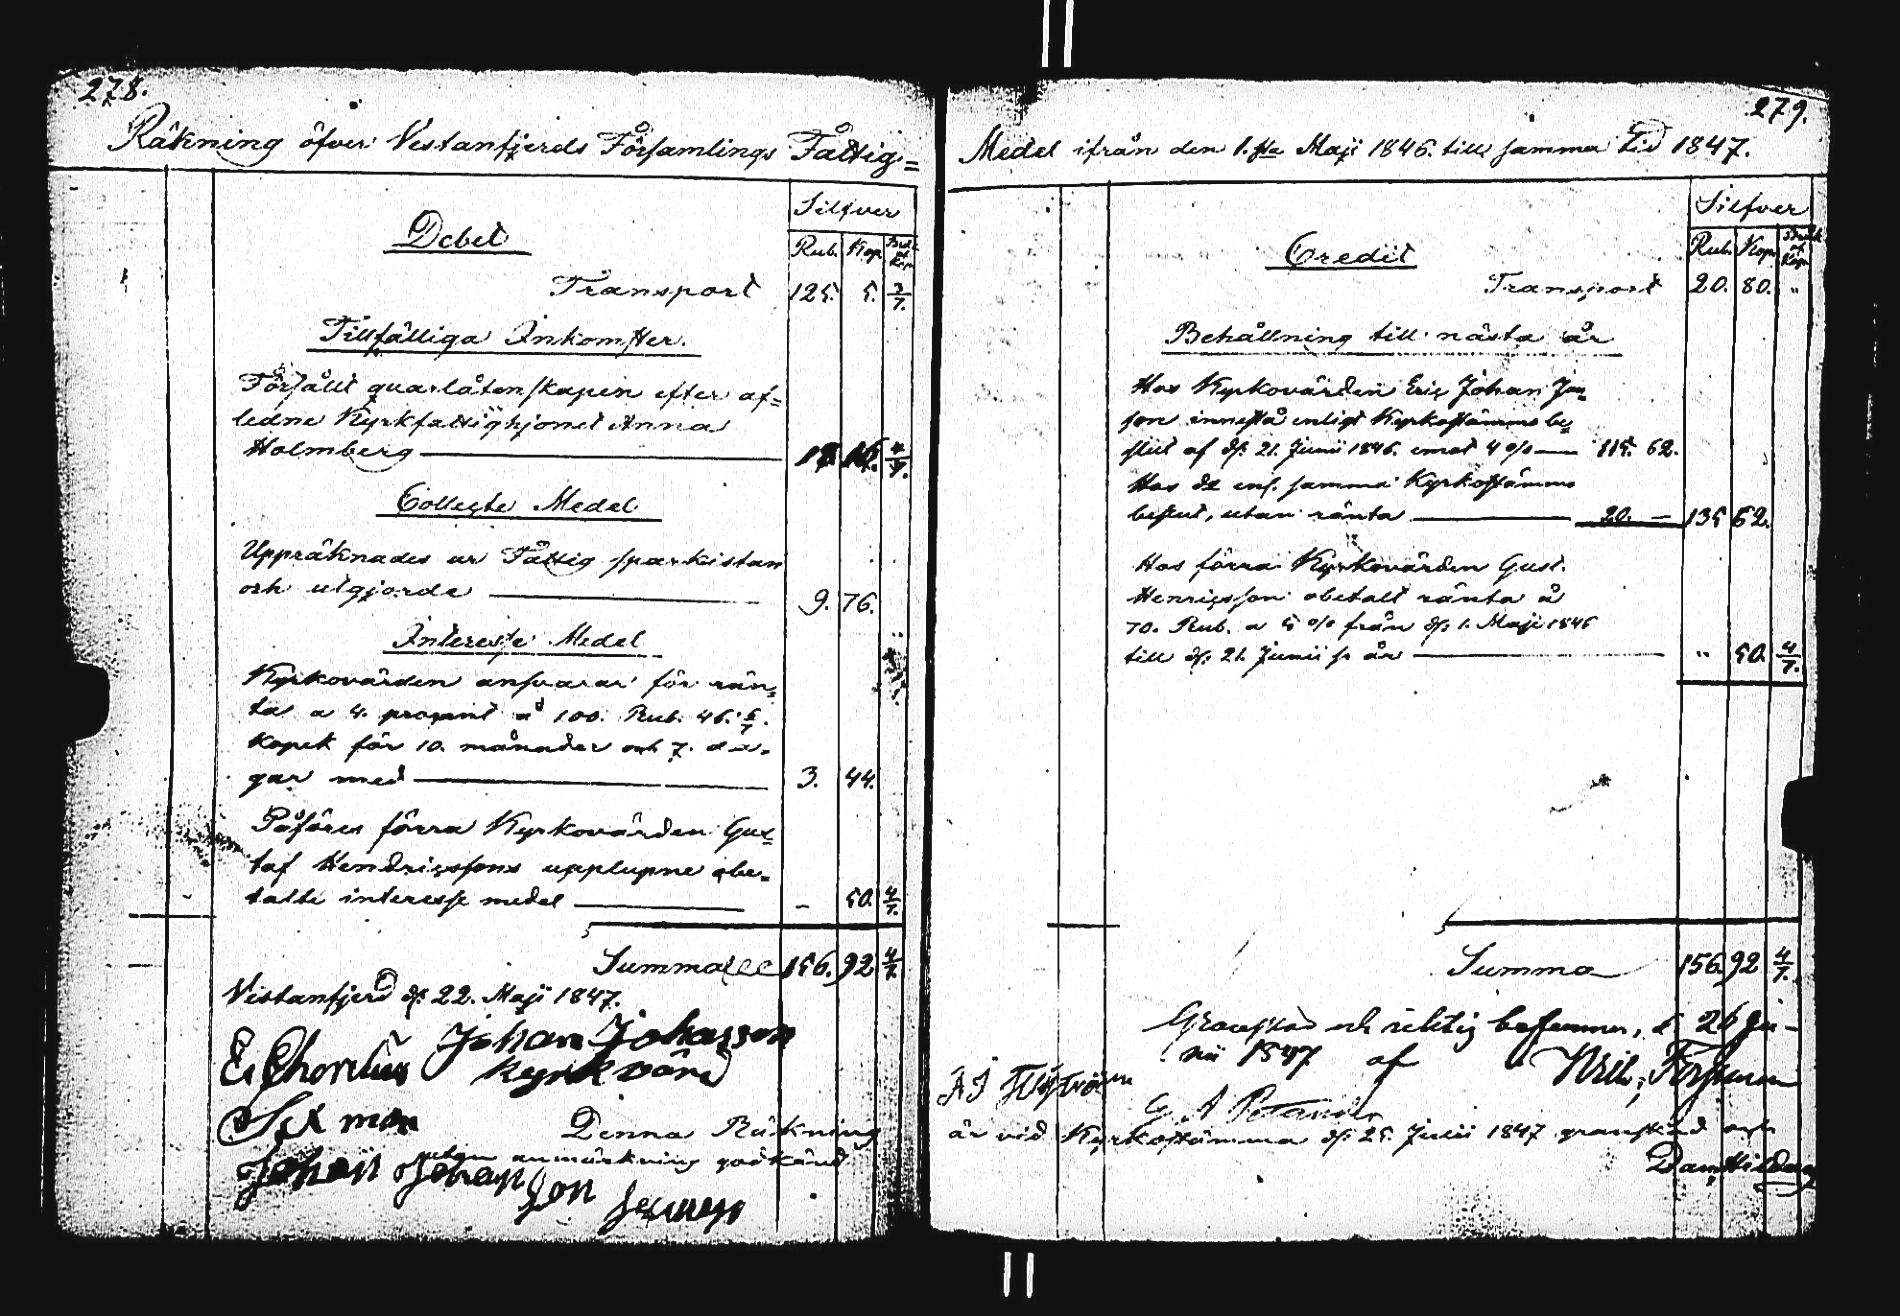 278.
Räkning öfver Vestanfjerds Församlings Fattig=
Debet
Silfver
Rub. Kop. Bråk af Kop.
Transport 125. 5. 3/7.
Tillfälliga Inkomster.
Försållt quarlåtenskapen efter af=
ledne Kyrkfattighjonet Anna
Holmberg
Collecte Medel
Uppräknades ur Fattig sparkistan
och utgjorde 9. 76.
Interesse Medel
Kyrkovärden ansvarar för rän=
ta a 4. procent å 100. Rub. 46. 6/7.
Kopek för 10. månader och 7. da=
gar med 3. 44.
Påföres förra Kyrkovärden Gus=
taf Hendricssons upplupne obe=
talte interesse medel - 50. 4/7.
Summa 156. 92 4/7.
Vestanfjerd d: 22. Maji 1847.
Johan Johansson
Kyrkvärd
Sexman
Johan Johansson
Denna Räkning
utan anmärkning godkänd
279.
Medel ifrån den 1.sta Maji 1846. till samma Tid 1847.
Credit
Silfver
Rub. Kop. Bråk af Kop.
Transport 20. 80. "
Behållning till nästa år
Hos Kyrkovärden Eric Johan Jan=
son innestå enligt Kyrkostämmo be=
slut af d: 21. Junii 1846. emot 4 o/o 115. 62.
Hos do enl. samma Kyrkostämmo
beslut, utan ränta 20. — 135 62.
Hos förra Kyrkovärden Gust.
Henricsson obetalt ränta å
70. Rub. a 5 o/o från d: 1. Maji 1846
till d: 21. Junii s. år " 50. 4/7.
Summa 156. 92 4/7.
Granskad och riktig befunnen, d 26 Ju-
nii 1847 af
är vid Kyrkostämma d: 25. Julii 1847 granskad och